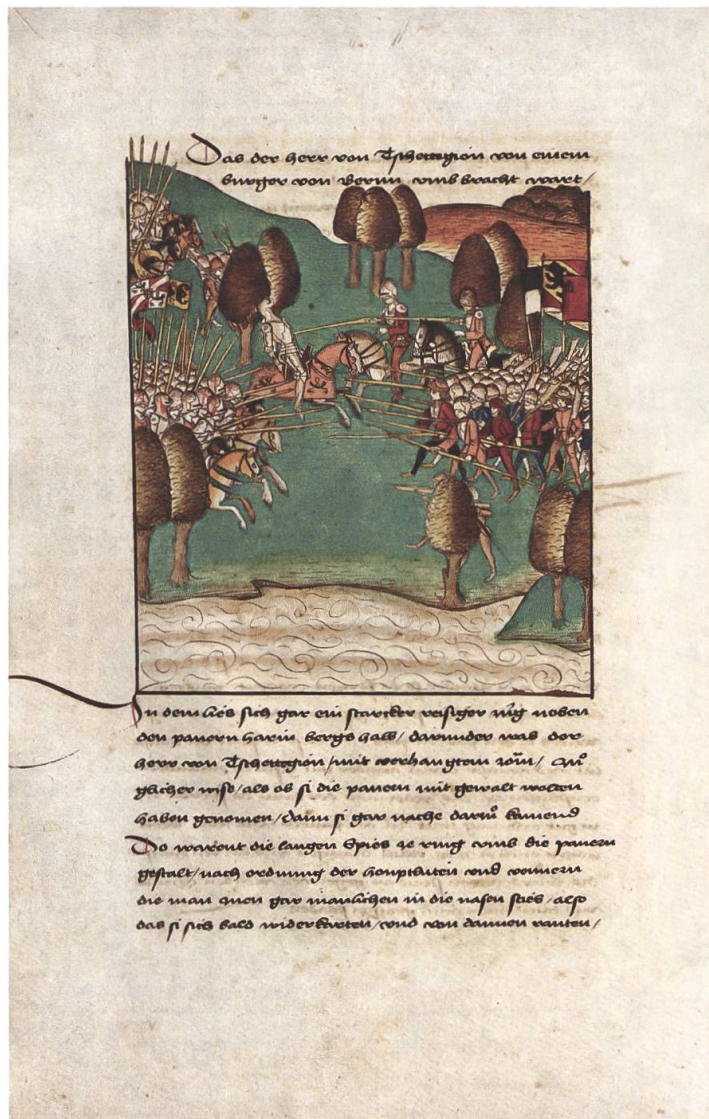 Das der herr von Tschettegion von einem
burger von Bernn umb bracht wart /
In dem lies sich gar ein starcker reisiger züg neben
den panern harin bergs halb / darunder was der
herr von Tschettegion / mit verhangtem zöm /
glicher wise / als ob si die panern mit gewalt wolten
haben genomen / dann si gar nache darzů kamend
Do warent die langen Spies ze ring umb die panern
gestalt / nach ordnung der houptlüten und vennern
die man inen gar manlichen in die nasen sties / also
das si sich bald widerkerten / und von dannen ranten /